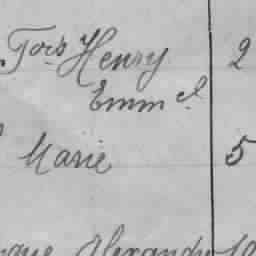 Fois Henry 2
Emm el
Marie 5
Alexandre 10